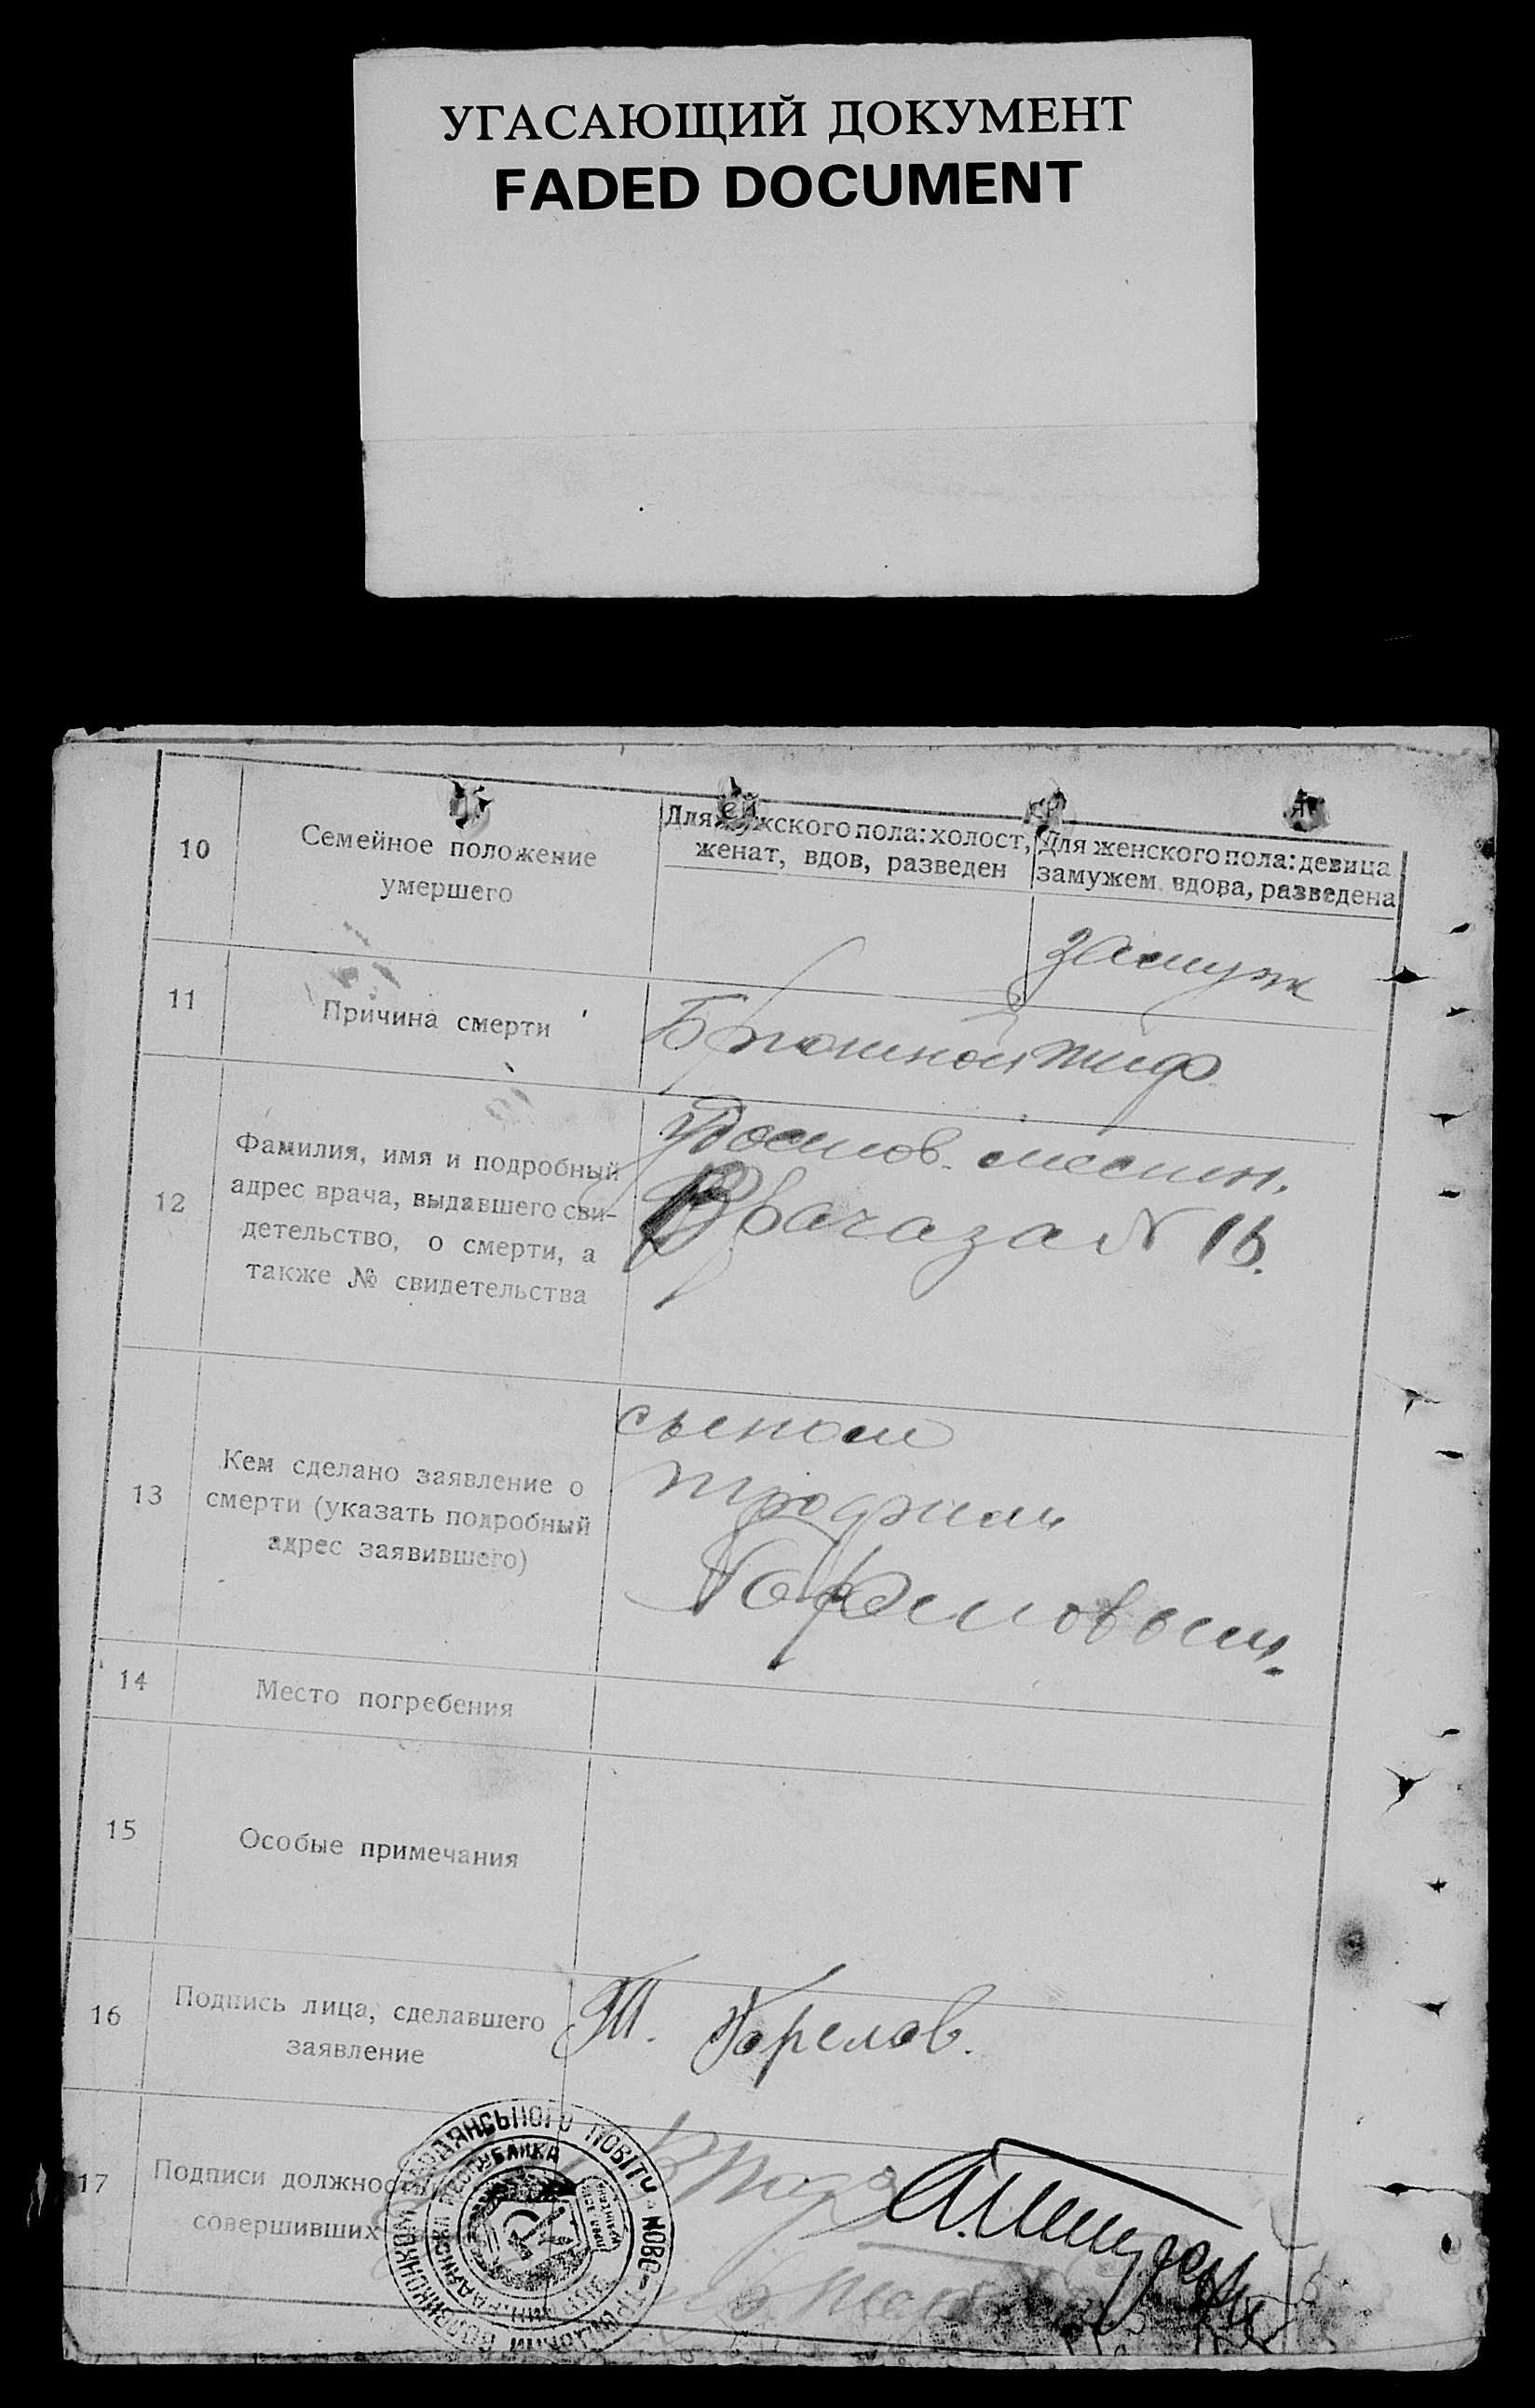 УГАСАЮЩИЙ ДОКУМЕНТ
FADED DOCUMENT
10
Семейное положение
умершего
Для мужского пола: холост,
женат, вдов, разведен
Для женского пола: девица
замужем, вдова, разведена
замуж
11
Причина смерти
Брюшной тиф
12
Фамилия, имя и подробный
адрес врача, выдавшего сви-
детельство, о смерти, а
также № свидетельства
удостов. местн.
N 16.
13
Кем сделано заявление о
смерти (указать подробный
адрес заявившего)
сыном
14
Место погребения
15
Особые примечания
16
Подпись лица, сделавшего
заявление
Т. Горелов.
17
Подписи должност
совершивших